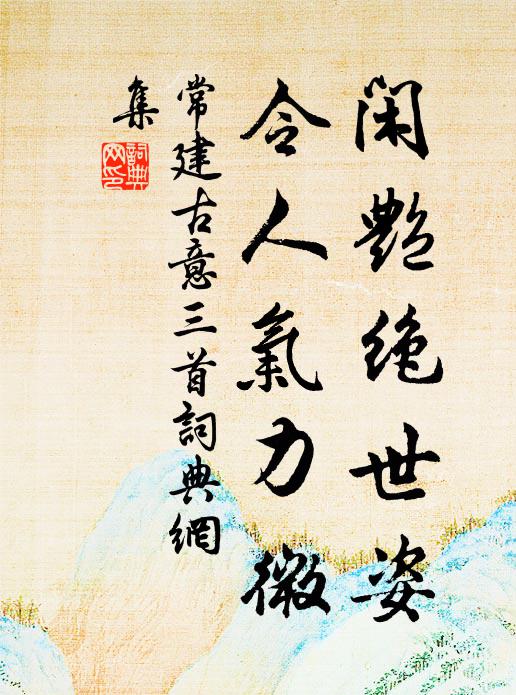 闲艷絶世姿
令人氣力微
常建古意三首詞典網
集
詞典
网印